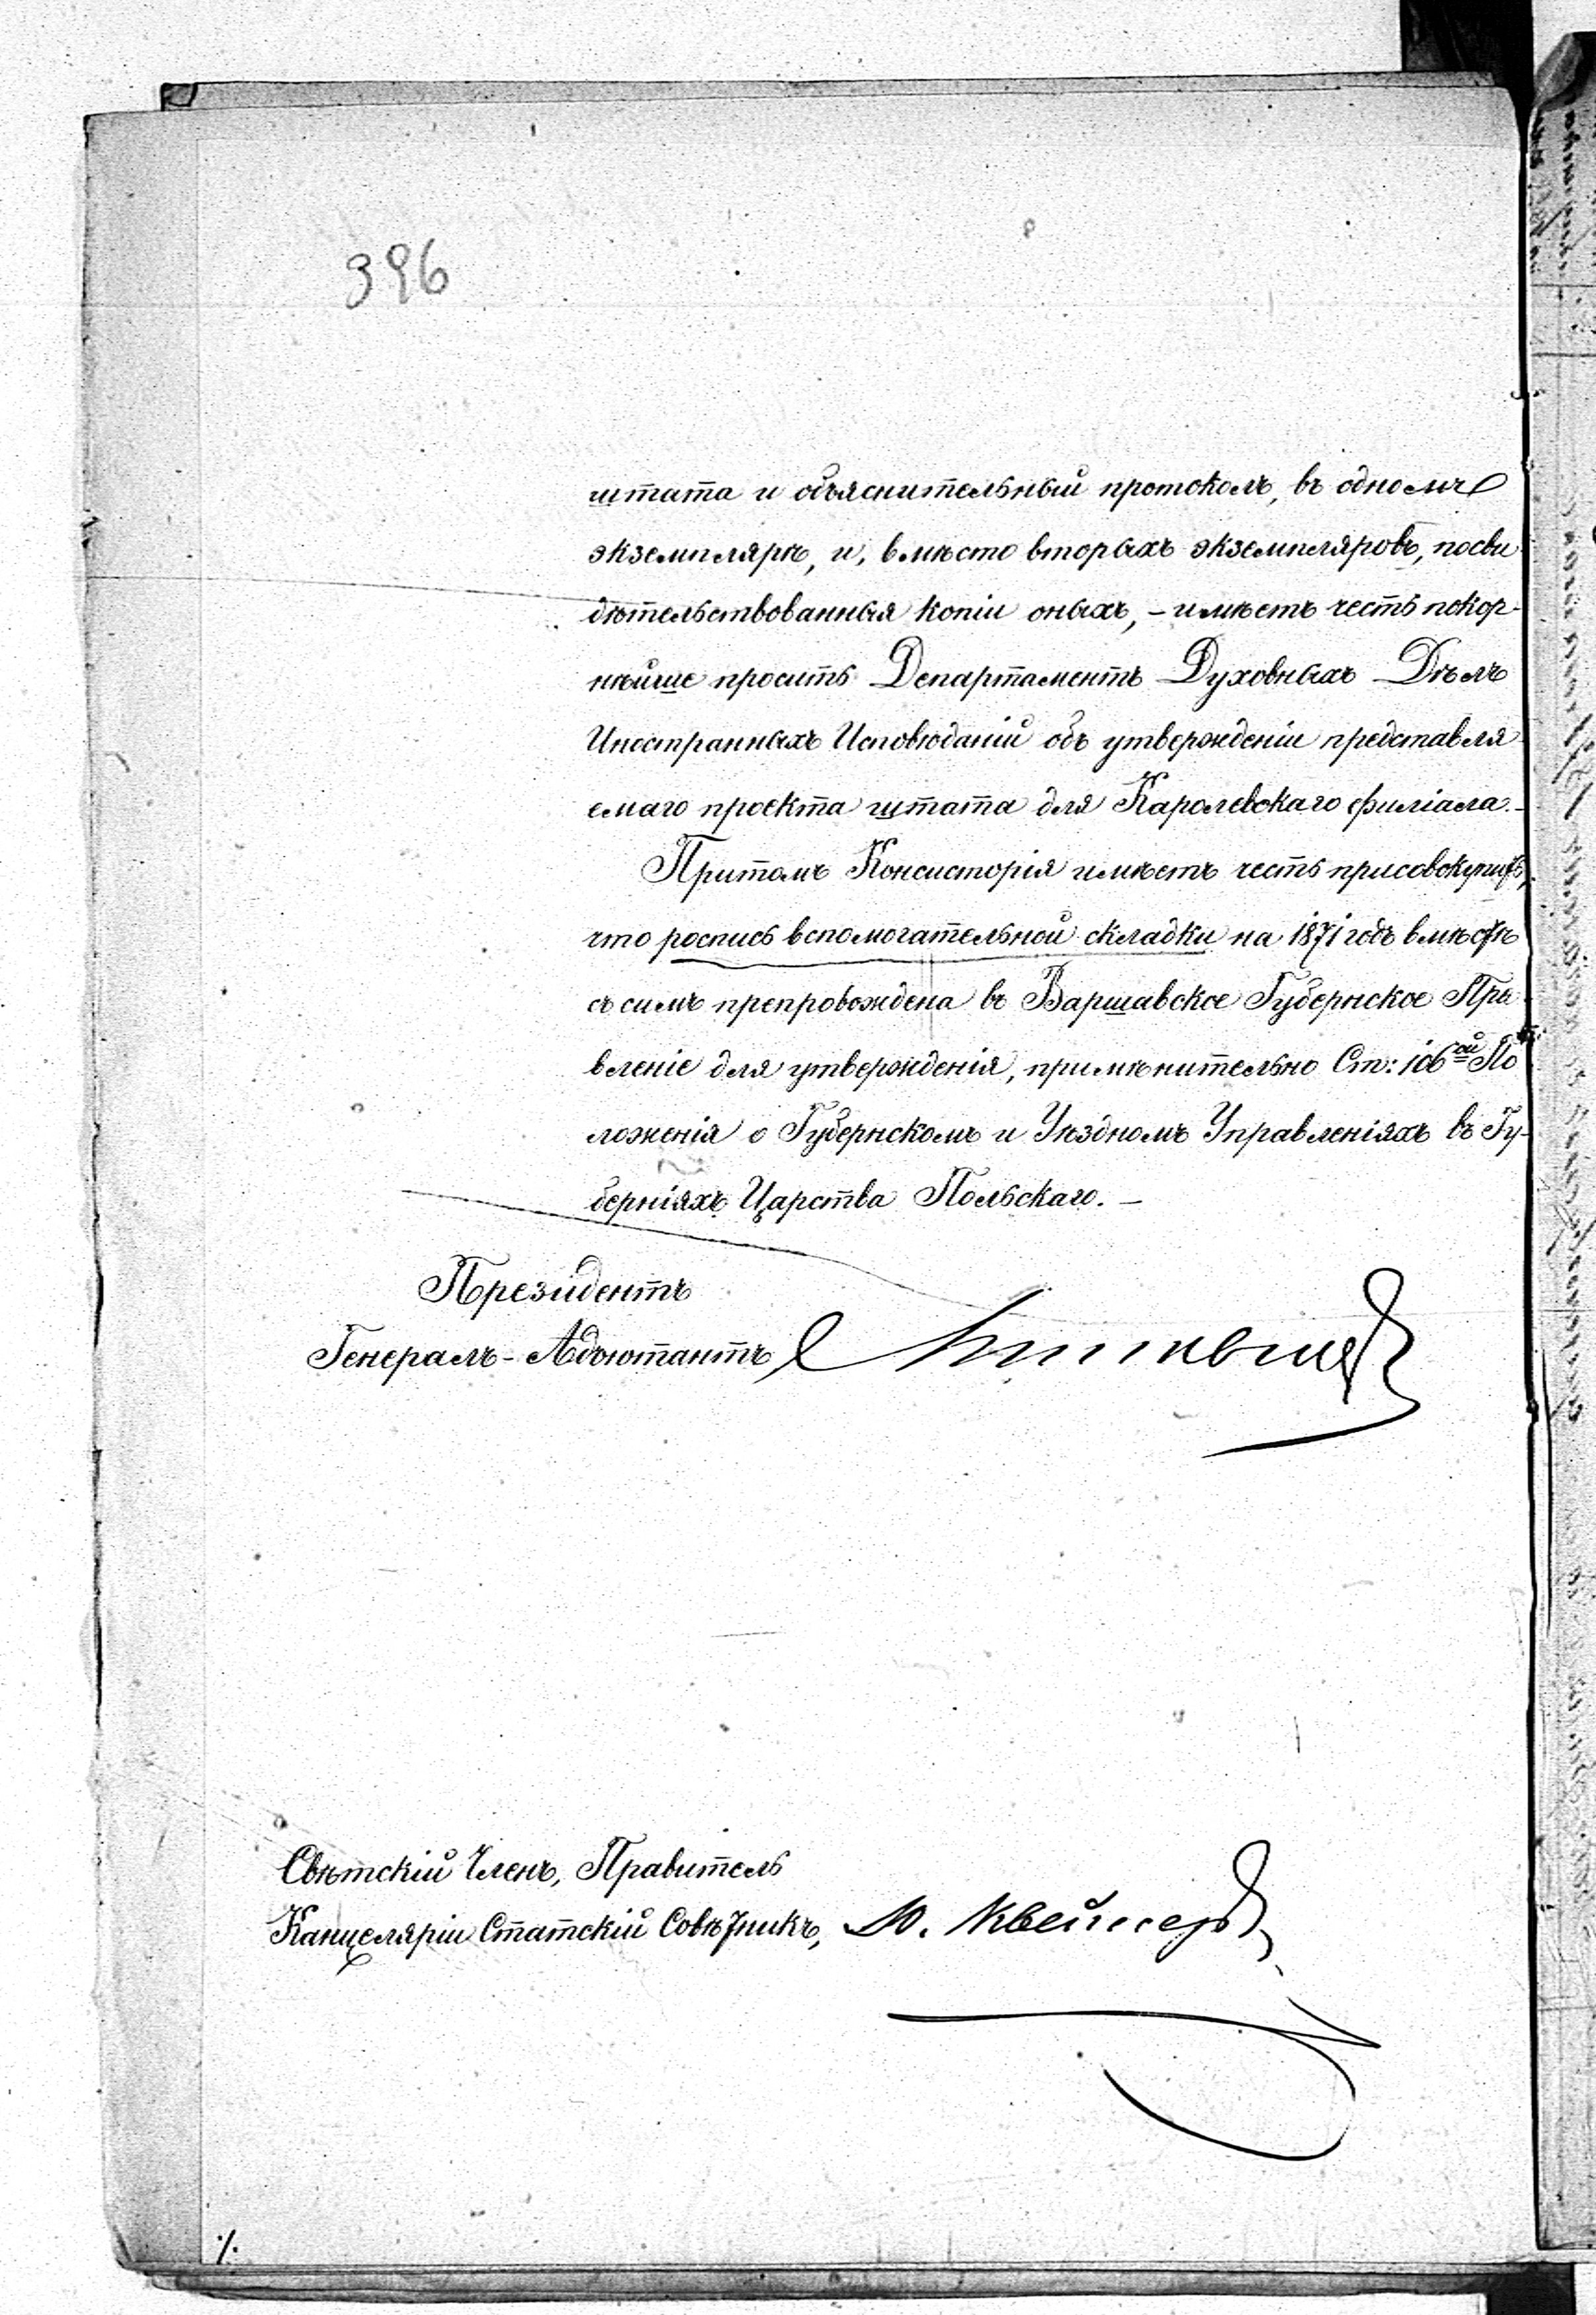 396
штата и объяснительный протоколъ, въ одномъ
экземплярѣ, и, вмѣсто вторыхъ экземпляровъ, посви-
дѣтельствованныя копіи оныхъ, – имѣетъ честь покор-
нѣйше просить Департаментъ Духовныхъ Дѣлъ
Иностранныхъ Исповѣданій объ утвержденіи представля-
емаго проекта штата для Каролевскаго филіала. –
Притомъ Консисторія имѣетъ честь присовокупить,
что роспись вспомогательной складки на 1871 годъ вмѣстѣ
съ симъ препровождена въ Варшавское Губернское Пра-
вленіе для утвержденія, примѣнительно Ст: 106ой По-
ложенія о Губернскомъ и Уѣздномъ Управленіяхъ въ Гу-
берніяхъ Царства Польскаго. –
Президентъ
Генералъ-Адъютантъ,
Свѣтскій Членъ, Правитель
Канцеляріи Статскій Совѣтникъ, Ю.